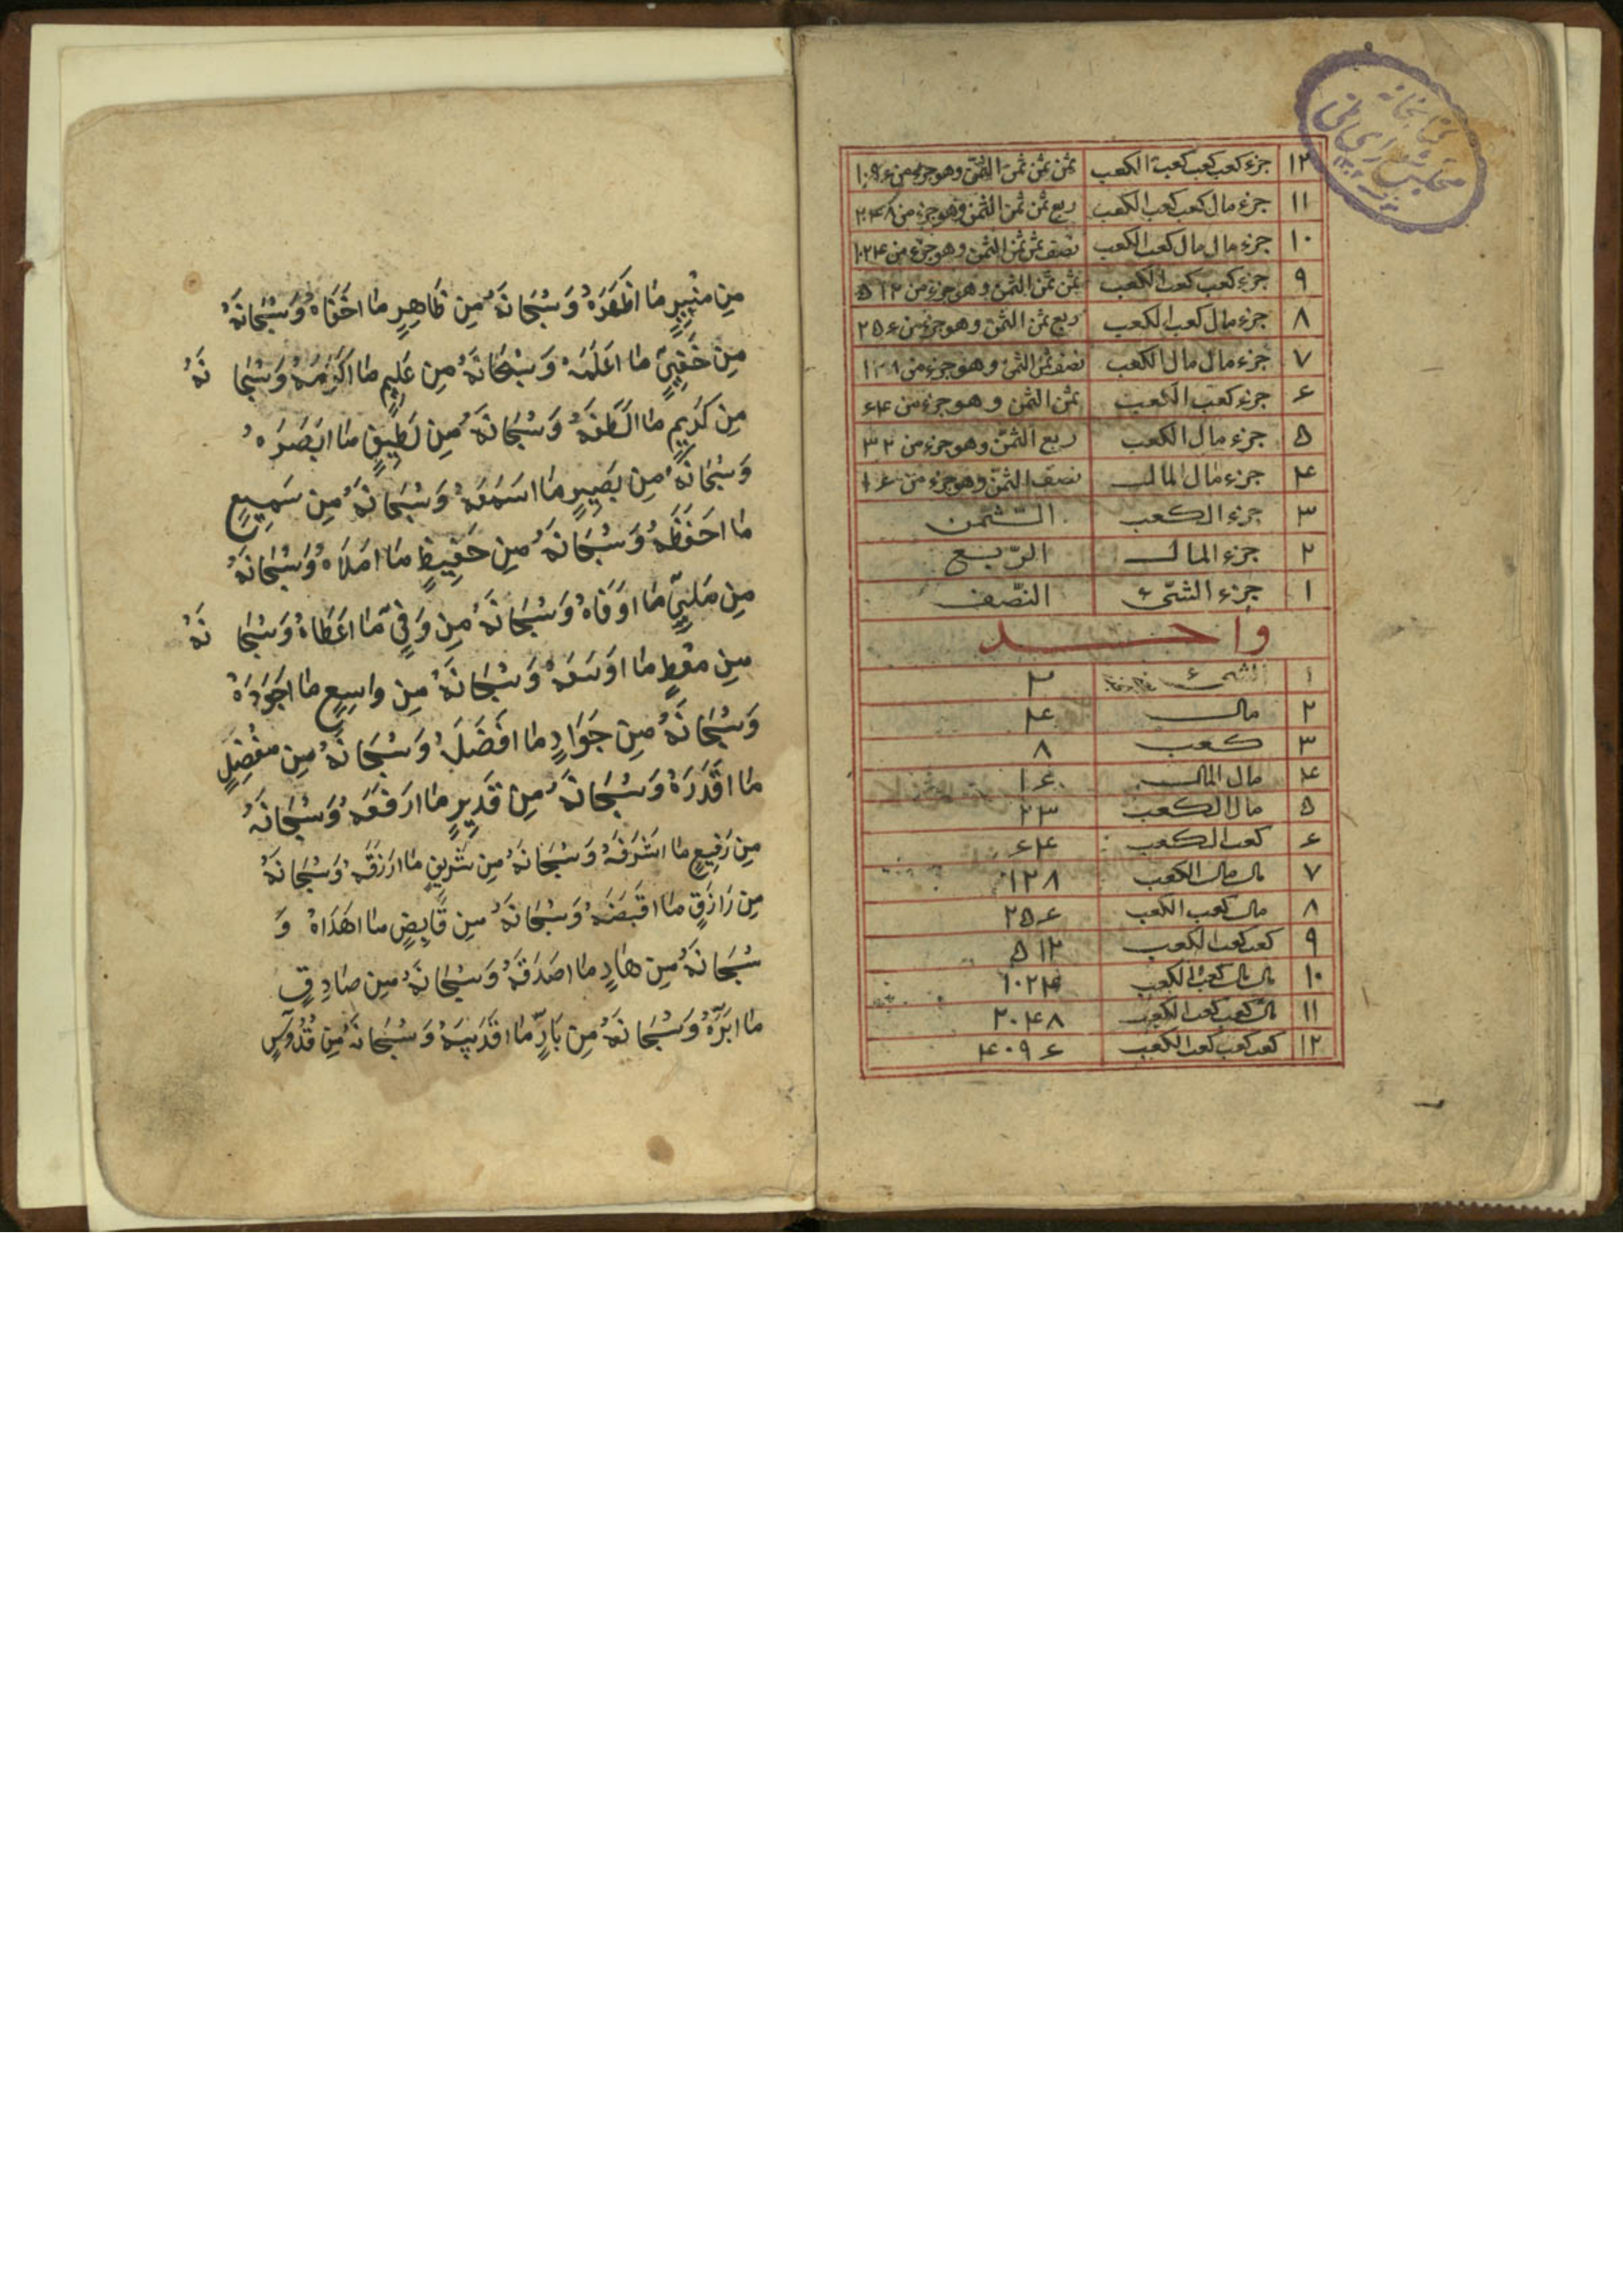 ۱۲ جزء كعب كعب كعب الكعب ثمن ثمن ثمن الثمن وهو جزء من
۱۱ جزء مال كعب كعب الكعب ربع ثمن ثمن الثمن وهو جزء من ۲۰۴۸
۱۰ جزء مال مال كعب الكعب نصف ثمن ثمن الثمن وهو جزء من ۱۰۲۴
۹ جزء كعب كعب الكعب ثمن ثمن الثمن وهو جزء من ۵۱۲
۸ جزء مال كعب الكعب ربع ثمن الثمن وهو جزء من ۲۵۶
۷ جزء مال مال الكعب نصف ثمن الثمن وهو جزء من ۱۲۸
۶ جزء كعب الكعب ثمن الثمن وهو جزء من ۶۴
۵ جزء مال الكعب ربع الثمن وهو جزء من ۳۲
۴ جزء مال المال نصف الثمن وهو جزء من ۱۶
۳ جزء الكعب الثّمن
۲ جزء المال الرّبع
۱ جزء الشّئ النّصف
واحد
۱ الشئ ۲
۲ مال ۴
۳ كعب ۸
۴ مال المال ۱۶
۵ مال الكعب ۳۲
۶ كعب الكعب ۶۴
۷ مال مال الكعب ۱۲۸
۸ مال كعب الكعب ۲۵۶
۹ كعب كعب الكعب ۵۱۲
۱۰ مال مال كعب الكعب ۱۰۲۴
۱۱ مال كعب كعب الكعب ۲۰۴۸
۱۲ كعب كعب كعب الكعب ۴۰۹۶
كتابخانه
مجلس شورای ملی
مِن مُنِيرٍ مَا اَظْهَرَهُ وَسُبْحَانَهُ مِن ظَاهِرٍ مَا اَخْفَاهُ وَسُبْحَانَهُ
مِن خَفِيٍّ مَا اَعْلَمَهُ وَسُبْحَانَهُ مِن عَلِيمٍ مَا اَكْرَمَهُ وَسُبْحَانَهُ
مِن كَرِيمٍ مَا اَلْطَفَهُ وَسُبْحَانَهُ مِن لَطِيفٍ مَا اَبْصَرَهُ
وَسُبْحَانَهُ مِن بَصِيرٍ مَا اَسْمَعَهُ وَسُبْحَانَهُ مِن سَمِيعٍ
مَا اَحْفَظَهُ وَسُبْحَانَهُ مِن حَفِيظٍ مَا اَمْلَاهُ وَسُبْحَانَهُ
مِن مَلِيٍّ مَا اَوْفَاهُ وَسُبْحَانَهُ مِن وَفِيٍّ مَا اَعْطَاهُ وَسُبْحَانَهُ
مِن مُعْطٍ مَا اَوْسَعَهُ وَسُبْحَانَهُ مِن وَاسِعٍ مَا اَجْوَدَهُ
وَسُبْحَانَهُ مِن جَوَادٍ مَا اَفْضَلَهُ وَسُبْحَانَهُ مِن مُفْضِلٍ
مَا اَقْدَرَهُ وَسُبْحَانَهُ مِن قَدِيرٍ مَا اَرْفَعَهُ وَسُبْحَانَهُ
مِن رَفِيعٍ مَا اَشْرَفَهُ وَسُبْحَانَهُ مِن شَرِيفٍ مَا اَرْزَقَهُ وَسُبْحَانَهُ
مِن رَازِقٍ مَا اَقْبَضَهُ وَسُبْحَانَهُ مِن قَابِضٍ مَا اَهْدَاهُ وَ
سُبْحَانَهُ مِن هَادٍ مَا اَصْدَقَهُ وَسُبْحَانَهُ مِن صَادِقٍ
مَا اَبَرَّهُ وَسُبْحَانَهُ مِن بَارٍّ مَا اَقْدَسَهُ وَسُبْحَانَهُ مِن قُدُّوسٍ